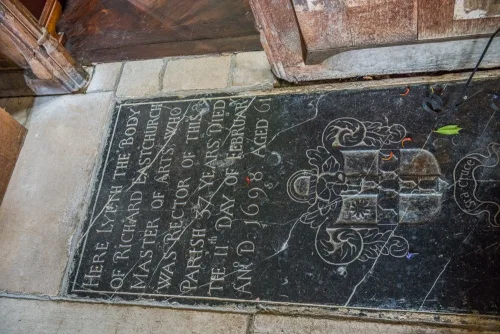 HERE LYETH THE BODY
OF RICHARD EASTCHURCH
MASTER OF ARTS WHO
WAS RECTOR OF THIS
PARISH 37 YEARS DIED
THE 11th DAY OF FEBRUARY
AN D. 1698 AGED